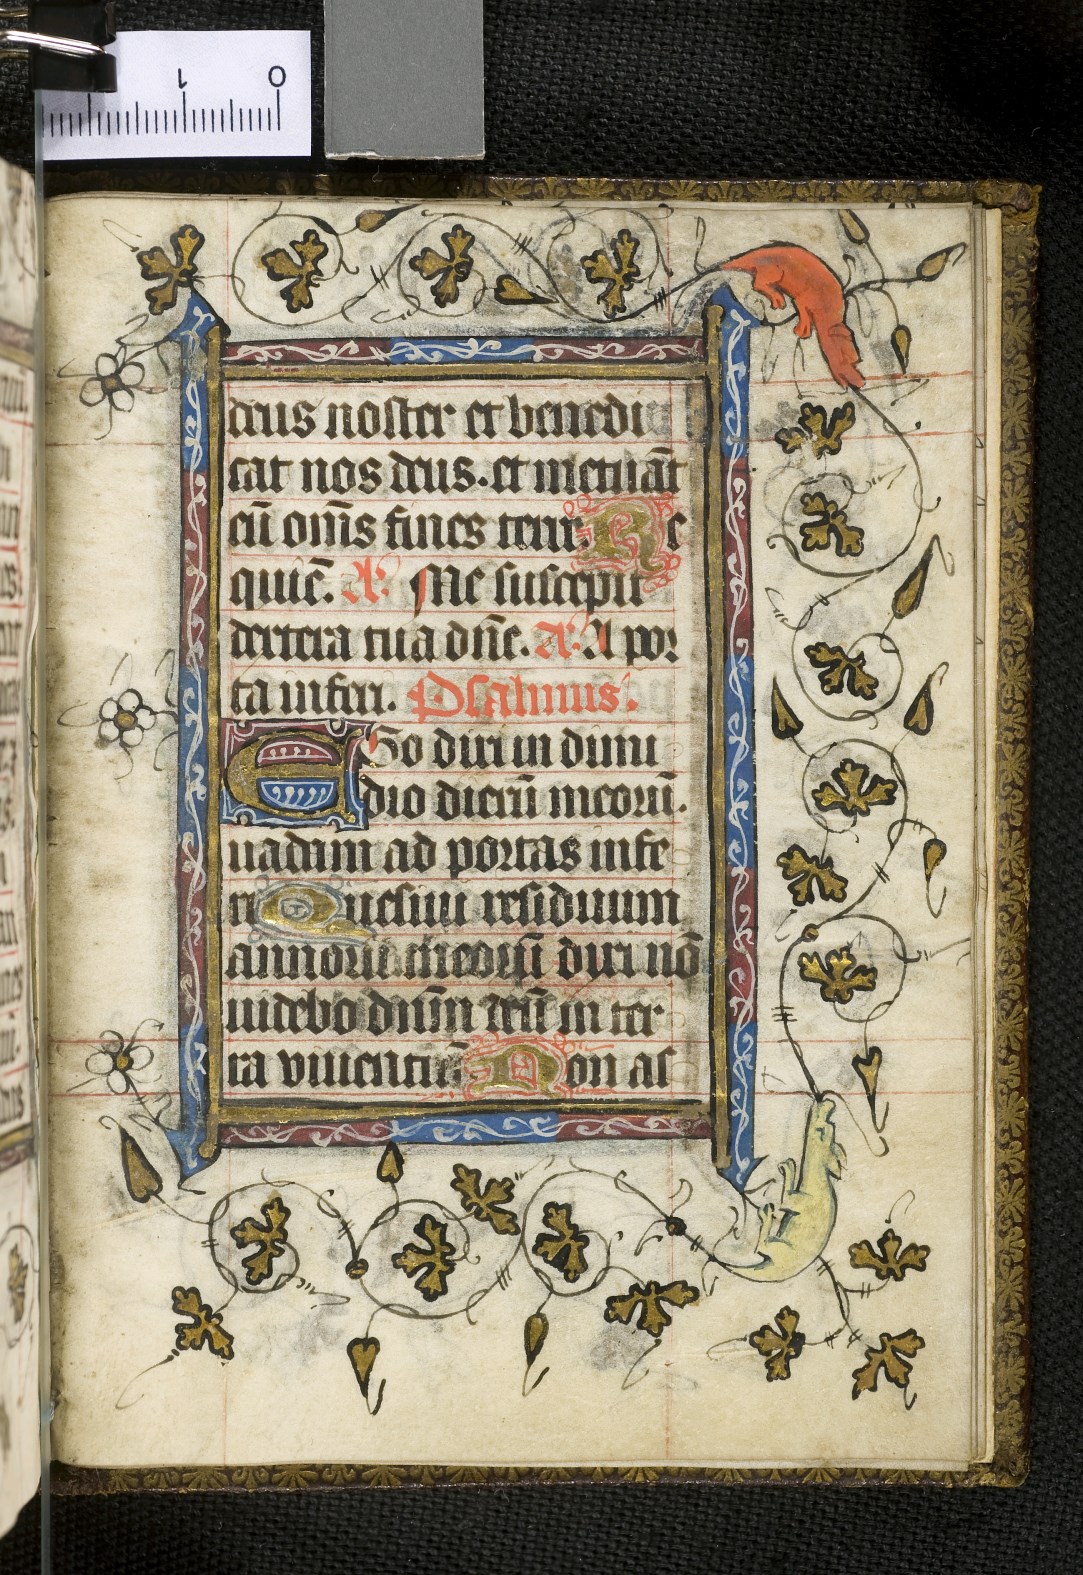 1 0
deus noster et benedi
cat nos deus. et metuāt
eū om̄s fines terre. Re
quiē. A. Me suscepit
dextera tua dn̄e. A. A por
ta inferi. Psalmus.
EGo dixi in dimi
dio dierū meorū.
uadam ad portas infe
ri Quesiui residuum
annorū meorū dixi nō
uidebo dūm deū in ter
ra viuentiū Non as